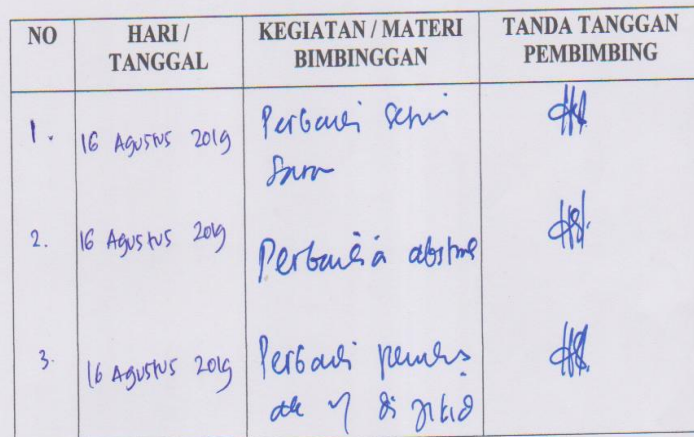 NO HARI / KEGIATAN / MATERI TANDA TANGGAN
TANGGAL BIMBINGGAN PEMBIMBING
1. 16 Agustus 2019 Perbaiki
Saran
2. 16 Agustus 2019 Perbaiki abstrak
3. 16 Agustus 2019 Perbaiki
di